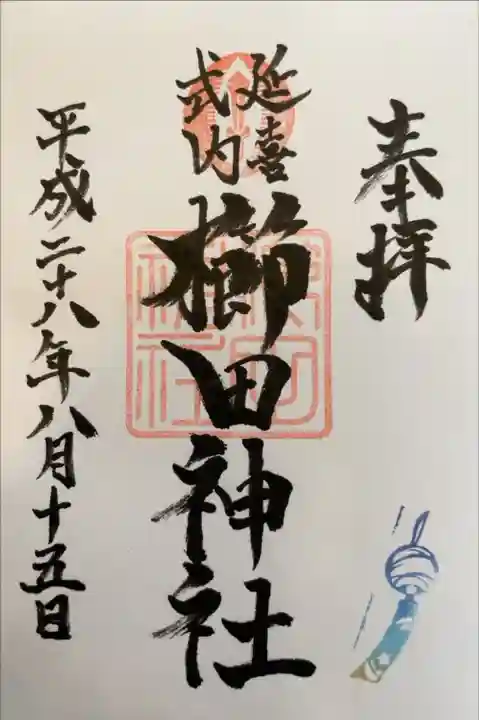 奉拝
延喜
式内
櫛田神社
平成二十八年八月十五日